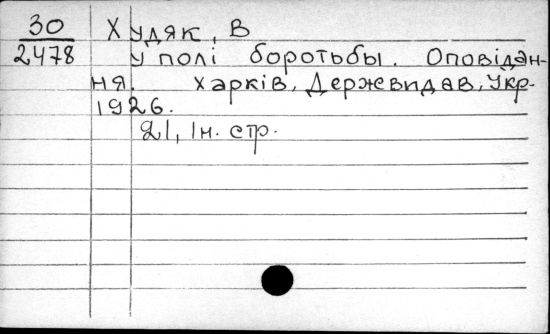 30 Худяк, В
2478 У полі боротьбы. Оповідан-
ня. Харків, Держвидав, Укр.
1926.
21, Ін. стр.